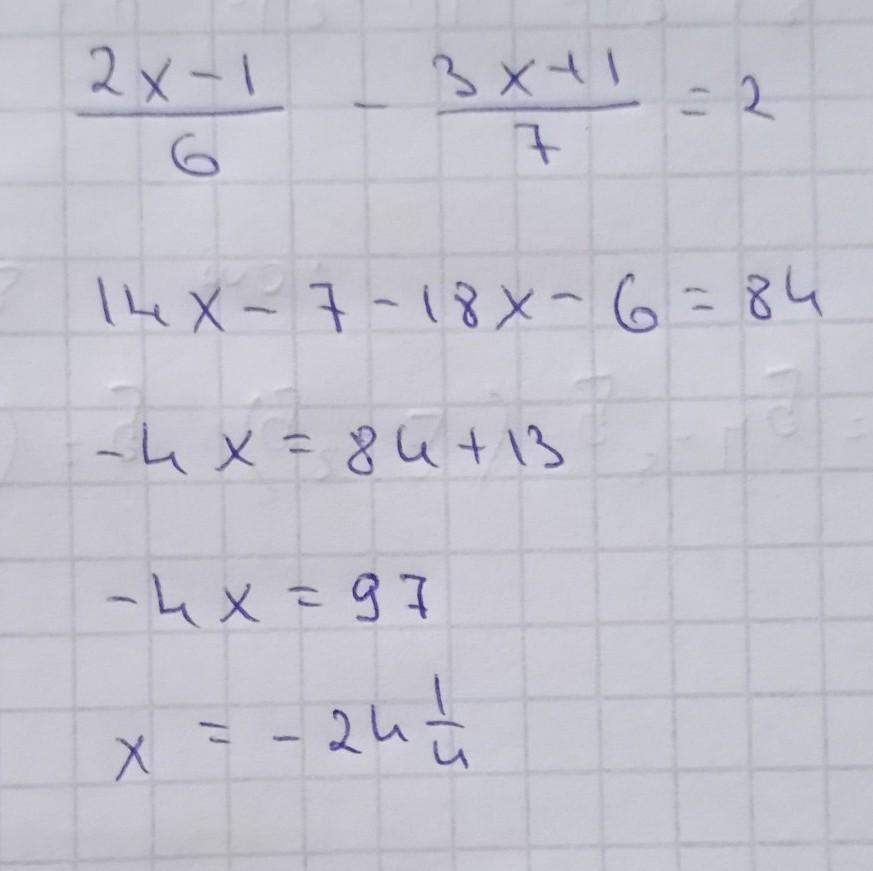 (2x-1)/6 - (3x+1)/7 = 2
14x - 7 - 18x - 6 = 84
-4x = 84 + 13
-4x = 97
x = -24 1/4